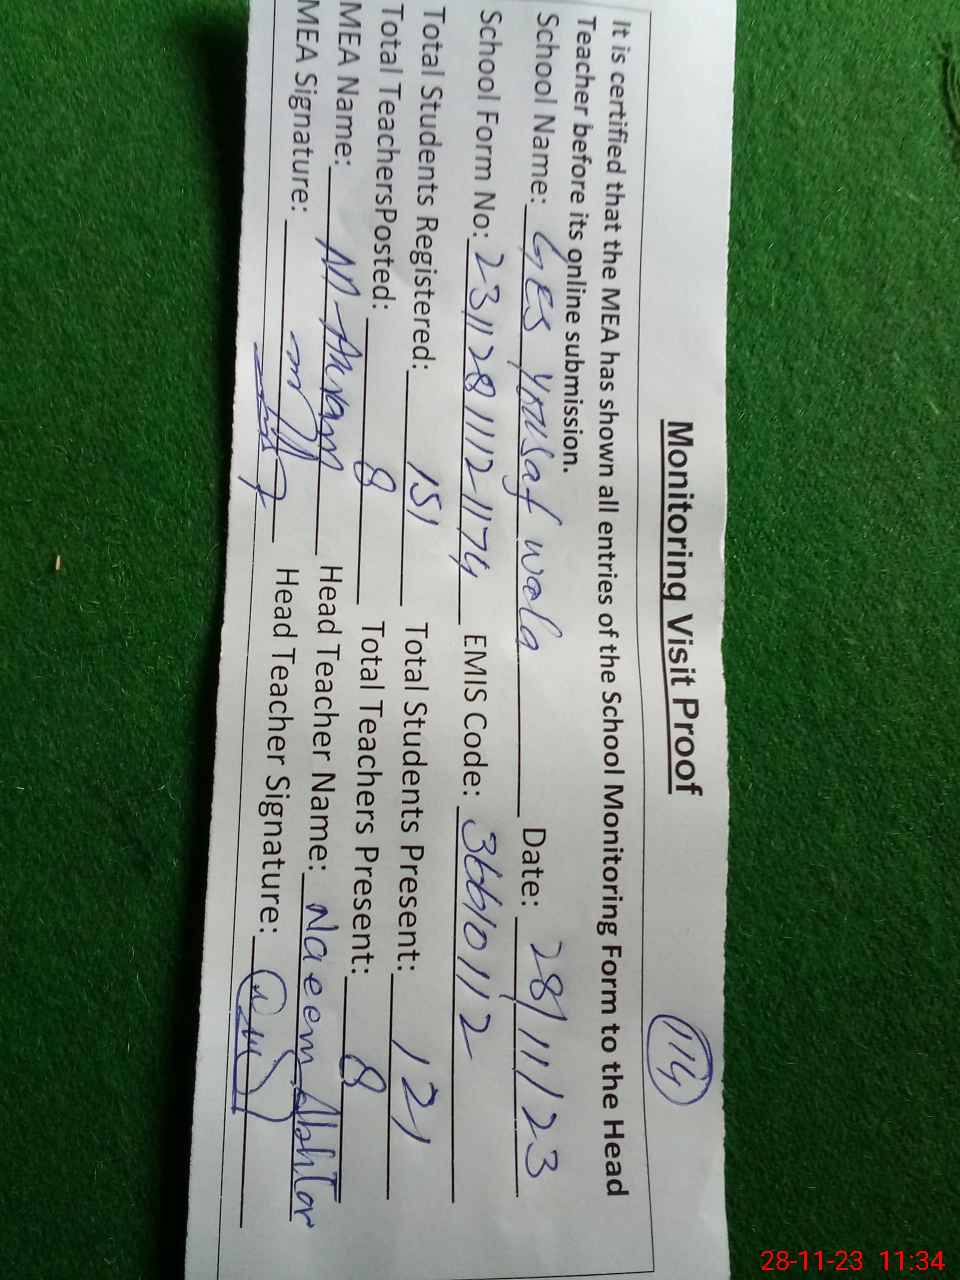 Monitoring Visit Proof
114
It is certified that the MEA has shown all entries of the School Monitoring Form to the Head
Teacher before its online submission.
School Name: GES Yousaf wala Date: 28/11/23
School Form No: 231128111121174 EMIS Code: 36610112
Total Students Registered: 151 Total Students Present: 121
Total TeachersPosted: 8 Total Teachers Present: 8
MEA Name: Head Teacher Name: Naeem Akhtar
MEA Signature: Head Teacher Signature:
28-11-23 11:34